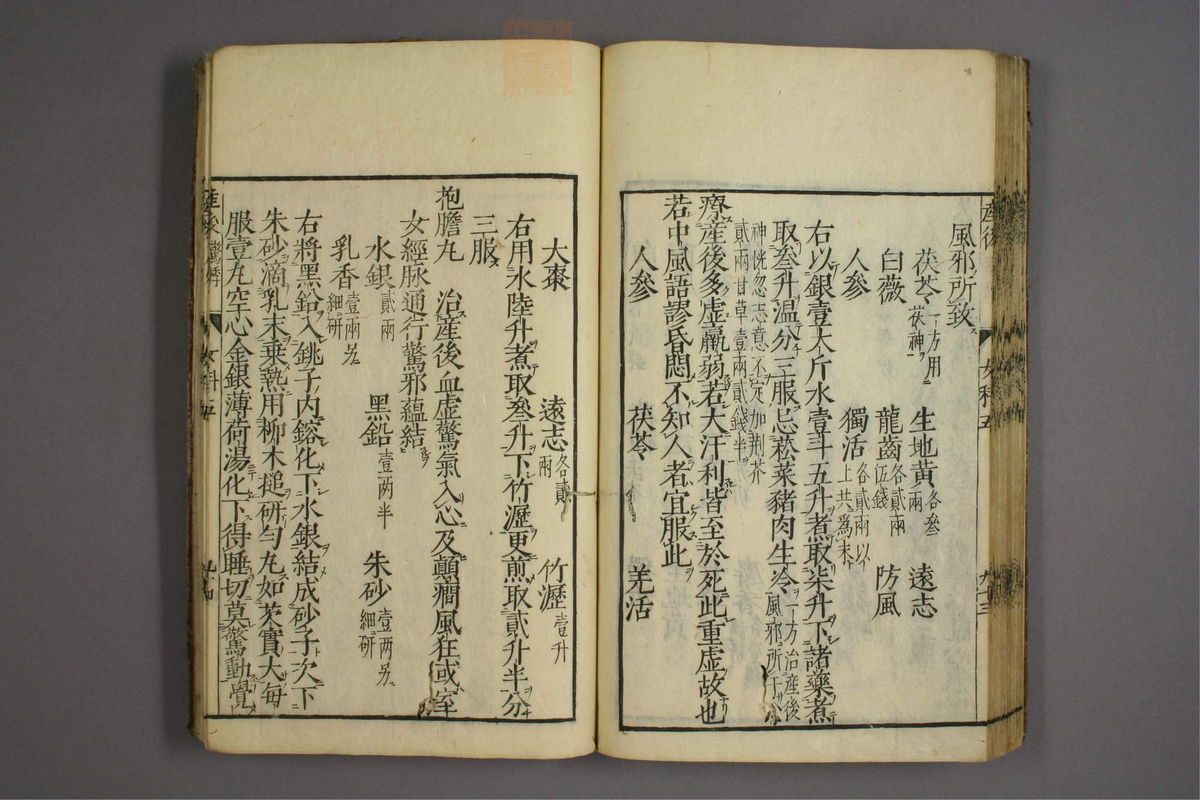 風邪所致
茯苓一方用茯神 生地黃各叁兩 遠志
白薇 龍齒各貳兩伍錢 防風
人參 獨活各貳兩以上共爲末
右以銀壹大斤水壹斗五升煮取柒升下諸藥煮
取叁升温分三服忌菘菜豬肉生冷一方治産後風邪所干心
神恍忽志意不定加荆芥貳兩甘草壹兩貳錢半
療産後多虛羸弱若大汗利皆至於死此重虛故也
若中風語謬昏悶不知人者宜服此
人參 茯苓 羌活
産後 女科五 九十三
大棗 遠志各貳兩 竹瀝壹升
右用水陸升煮取叁升下竹瀝更煎取貳升半分
三服
抱膽丸 治産後血虛驚氣入心及顛癇風狂或室
女經脉通行驚邪蘊結
水銀貳兩 黑鉛壹兩半 朱砂壹兩另細研
乳香壹兩另細研
右將黑鉛入銚子内鎔化下水銀結成砂子次下
朱砂滴乳末乗熱用柳木搥研匀丸如芡實大每
服壹丸空心金銀薄荷湯化下得睡切莫驚動覺
産後驚悸 女科五 九十四